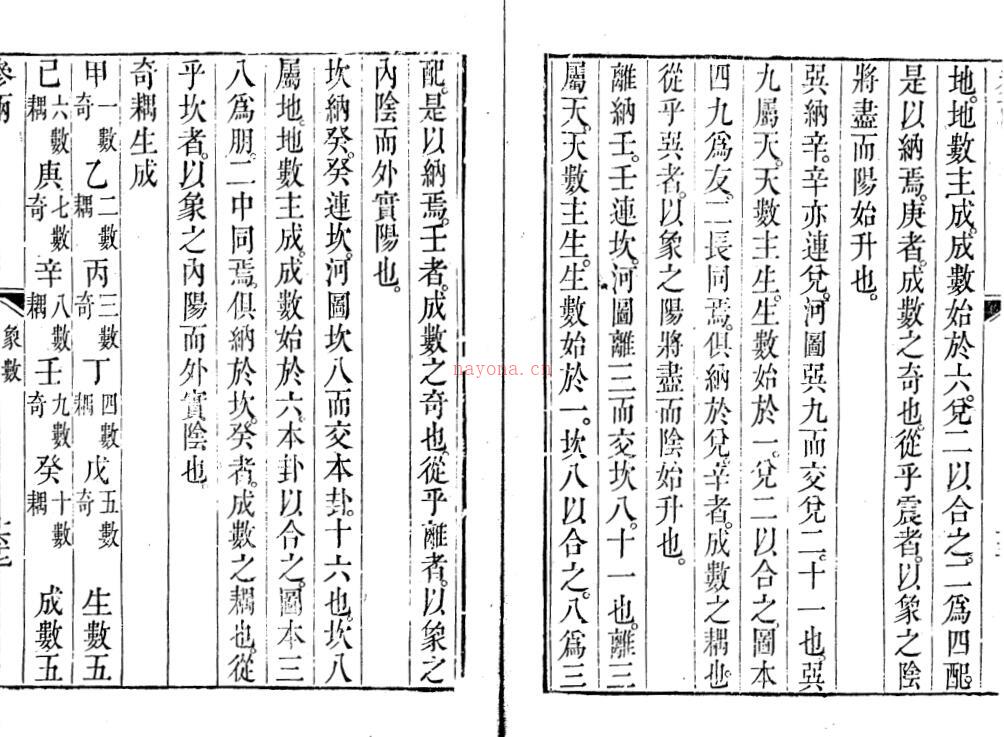 地。地數主成。成數始於六。兌二以合之。二爲四配。
是以納焉。庚者。成數之奇也。從乎震者。以象之陰
將盡而陽始升也。
巽納辛。辛亦連兌。河圖巽九而交兌二。十一也。巽
九屬天。天數主生。生數始於一。兌二以合之。圖本
四九爲友。二長同焉。俱納於兌。辛者。成數之耦也
從乎巽者。以象之陽將盡而陰始升也。
離納壬。壬連坎。河圖離三而交坎八。十一也。離三
屬天。天數主生。生數始於一。坎八以合之。八爲三
配。是以納焉。壬者。成數之奇也。從乎離者。以象之
內陰而外實陽也。
坎納癸。癸連坎。河圖坎八而交本卦。十六也。坎八
屬地。地數主成。成數始於六。本卦以合之。圖本三
八爲朋。二中同焉。俱納於坎。癸者。成數之耦也。從
乎坎者。以象之內陽而外實陰也
奇耦生成
甲一數奇 乙二數耦 丙三數奇 丁四數耦 戊五數奇 生數五
己六數耦 庚七數奇 辛八數耦 壬九數奇 癸十數耦 成數五
象數
nayona.cn